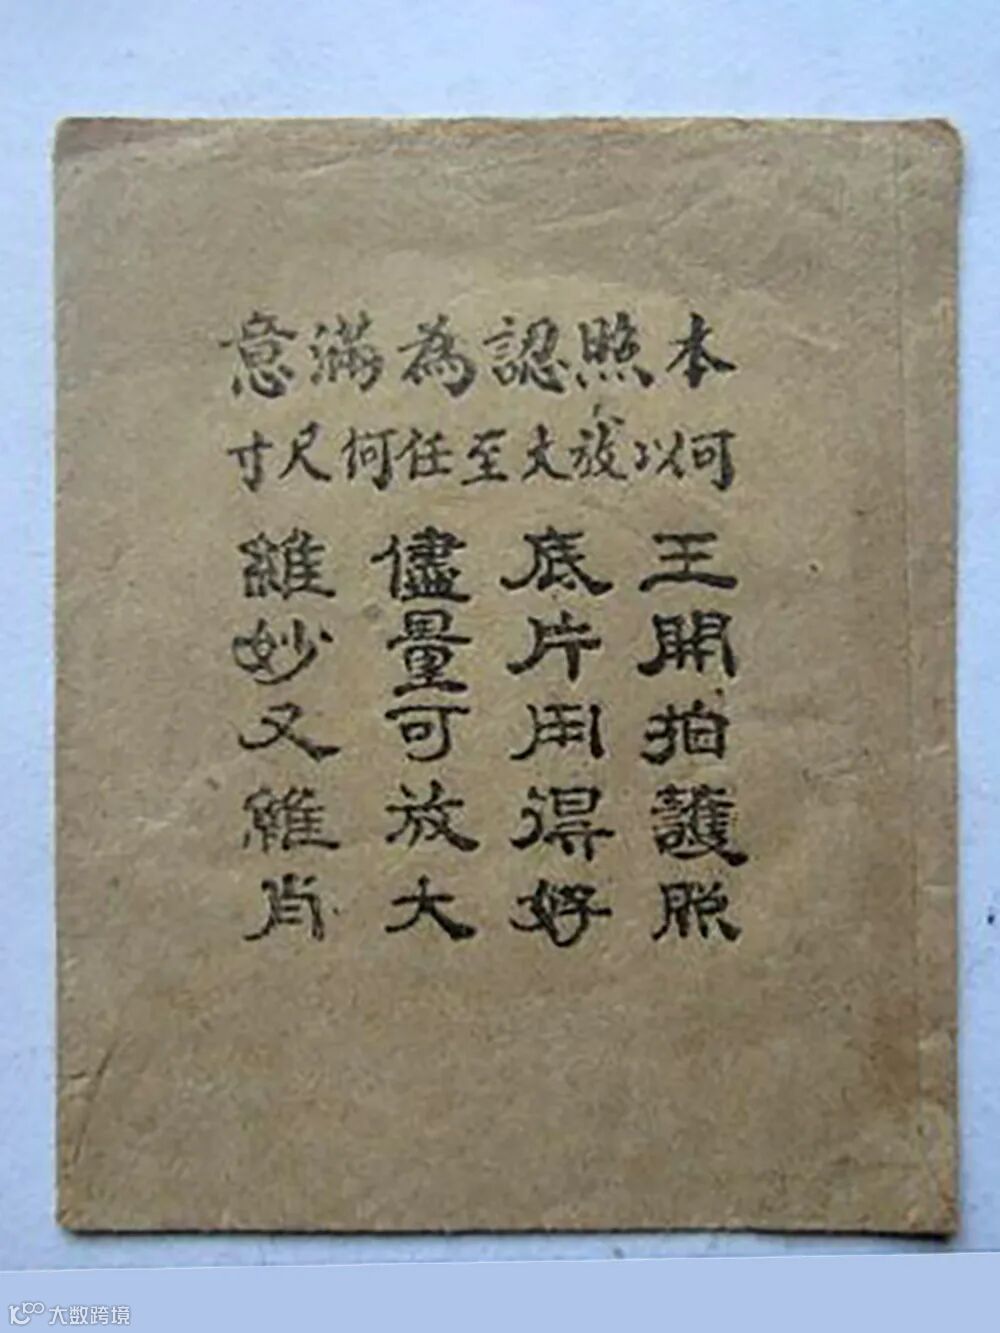 本照認為滿意
何以放大至任何尺寸
王開拍護照
底片用得好
儘量可放大
維妙又維肖
大数跨境